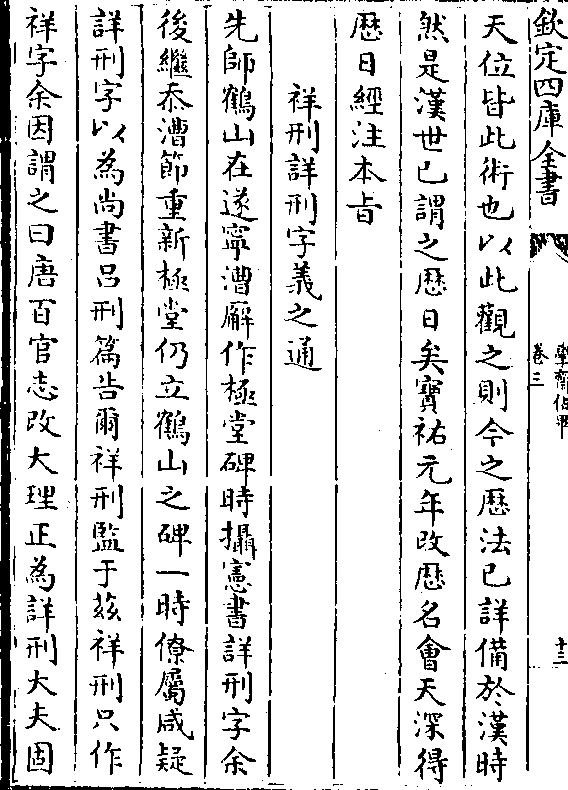 欽定四庫全書
學齋佔畢
卷三
十三
天位皆此術也以此觀之則今之厯法已詳備於漢時
然是漢世已謂之厯日矣寳祐元年改厯名會天深得
厯日經注本旨
祥刑詳刑字義之通
先師鶴山在遂寧漕廨作極堂碑時攝憲書詳刑字余
後繼忝漕節重新極堂仍立鶴山之碑一時僚屬咸疑
詳刑字以為尚書吕刑篇告爾祥刑監于兹祥刑只作
祥字余因謂之曰唐百官志改大理正為詳刑大夫固